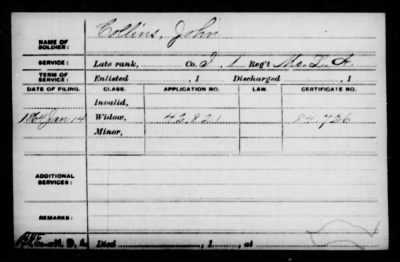 NAME OF SOLDIER: Collins, John
SERVICE: Late rank, Co. I, 1 Reg't Me. L. A.
TERM OF SERVICE: Enlisted , 1 Discharged , 1
DATE OF FILING. CLASS. APPLICATION NO. LAW. CERTIFICATE NO.
Invalid,
1864 Jan 14 Widow, 42,821 84,726
Minor,
ADDITIONAL SERVICES:
REMARKS:
Died , 1 , at